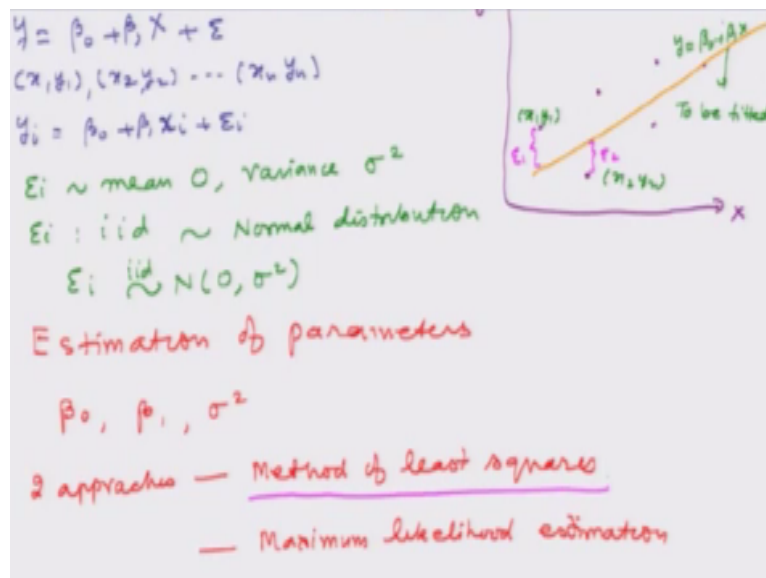 y = β₀ + β₁ X + ε
(x₁ y₁), (x₂ y₂) ... (xₙ yₙ)
yᵢ = β₀ + β₁ xᵢ + εᵢ
εᵢ ~ mean 0, variance σ²
εᵢ : iid ~ Normal distribution
εᵢ iid ~ N(0, σ²)
Estimation of parameters
β₀, β₁, σ²
2 appraches — Method of least squares
— Maximum likelihood estimation
y = β₀ + β₁ X
(x₁ y₁)
To be fitted
ε₁
ε₂
(x₂ y₂)
X